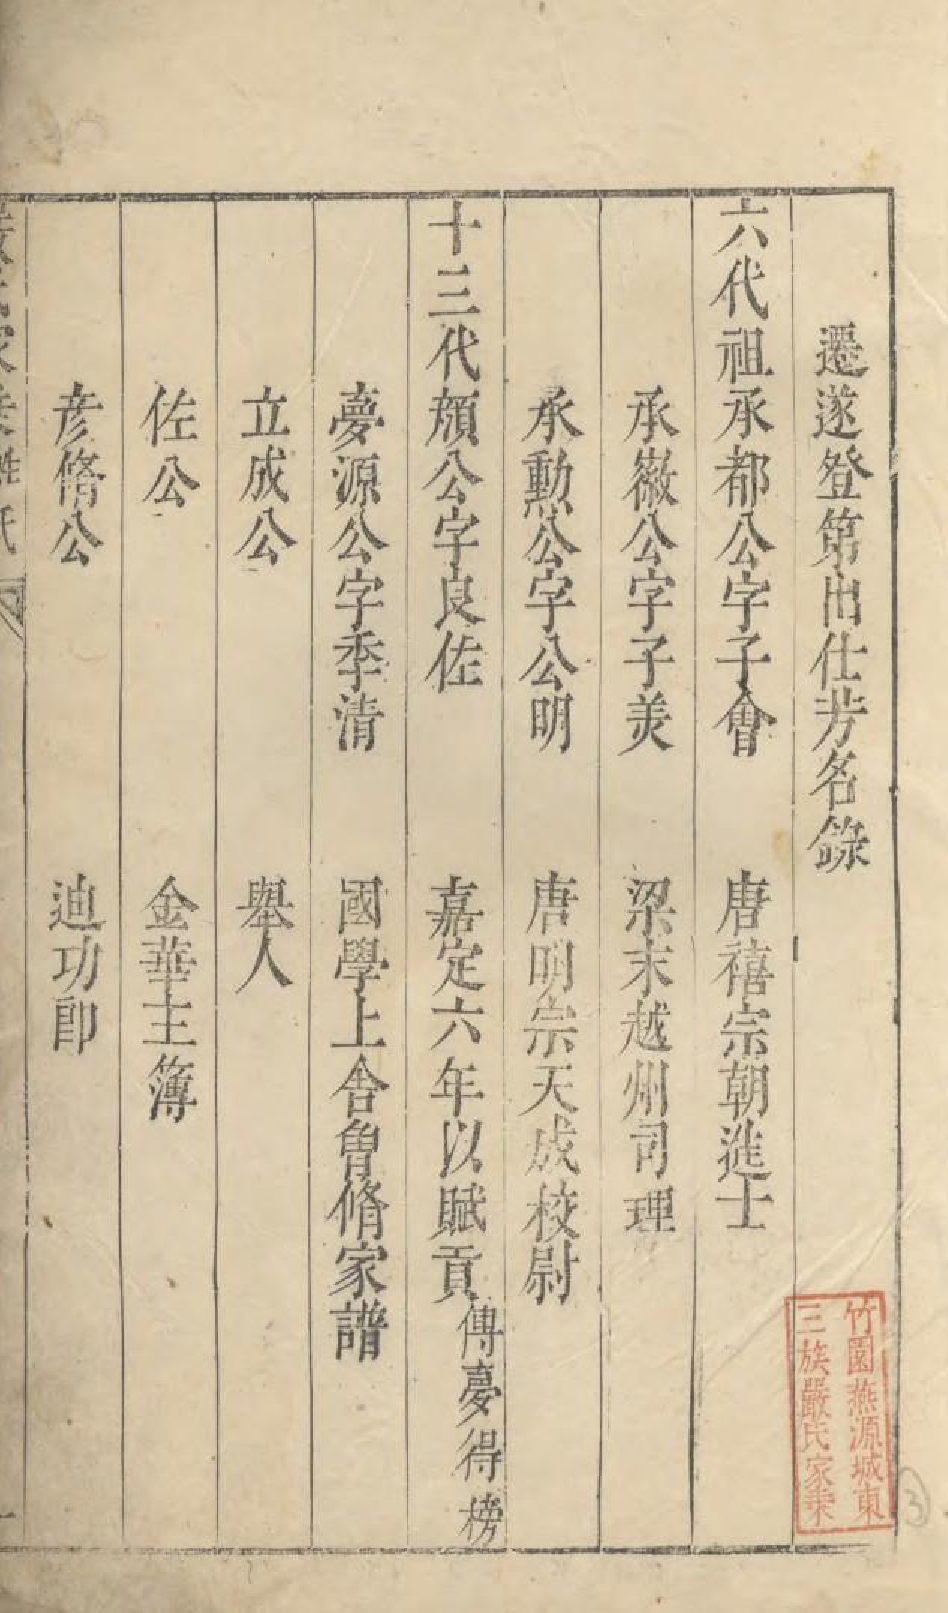 遷遂登第出仕芳名錄
六代祖承都公字子會 唐禧宗朝進士
承徽公字子美 梁末越州司理
承勳公字公明 唐明宗天成校尉
十三代頎公字良佐 嘉定六年以賦貢 傳夢得榜
夢源公字季清 國學上舍曾脩家譜
立成公 舉人
佐公 金華主簿
彦脩公 迪功郎
竹園燕源城東
三族嚴氏家乘